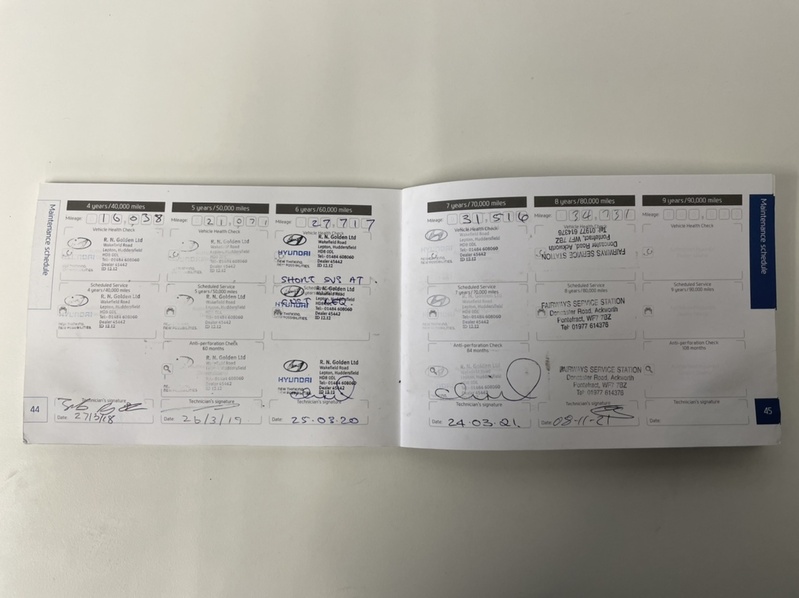 Maintenance schedule
44
4 years/40,000 miles
Mileage: 16,038
Vehicle Health Check
R. N. Golden Ltd
Wakefield Road
Lepton, Huddersfield
HD8 0DL
Tel:- 01484 608060
Dealer 45442
ID 12.12
HYUNDAI
NEW THINKING.
NEW POSSIBILITIES.
Scheduled Service
4 years/40,000 miles
R. N. Golden Ltd
Wakefield Road
Lepton, Huddersfield
HD8 0DL
Tel:- 01484 608060
Dealer 45442
ID 12.12
Technician's signature
Date:
5 years/50,000 miles
Mileage: 21,071
Vehicle Health Check
R. N. Golden Ltd
Wakefield Road
Lepton, Huddersfield
HD8 0DL
Tel:- 01484 608060
Dealer 45442
ID 12.12
Scheduled Service
5 years/50,000 miles
R. N. Golden Ltd
Wakefield Road
Lepton, Huddersfield
HD8 0DL
Tel:- 01484 608060
Dealer 45442
ID 12.12
Anti-perforation Check
60 months
R. N. Golden Ltd
Wakefield Road
Lepton, Huddersfield
HD8 0DL
Tel:- 01484 608060
Dealer 45442
ID 12.12
Technician's signature
Date: 26/3/19
6 years/60,000 miles
Mileage: 27,717
Vehicle Health Check
R. N. Golden Ltd
Wakefield Road
Lepton, Huddersfield
HD8 0DL
Tel:- 01484 608060
Dealer 45442
ID 12.12
HYUNDAI
NEW THINKING.
NEW POSSIBILITIES.
SHORT SVS AT
R. N. Golden Ltd
Wakefield Road
Lepton, Huddersfield
HD8 0DL
Tel:- 01484 608060
Dealer 45442
ID 12.12
HYUNDAI
R. N. Golden Ltd
Wakefield Road
Lepton, Huddersfield
HD8 0DL
Tel:- 01484 608060
Dealer 45442
ID 12.12
HYUNDAI
NEW THINKING.
NEW POSSIBILITIES.
Technician's signature
Date: 25.03.20
7 years/70,000 miles
Mileage: 31,516
Vehicle Health Check
R. N. Golden Ltd
Wakefield Road
Lepton, Huddersfield
HD8 0DL
Tel:- 01484 608060
Dealer 45442
ID 12.12
Scheduled Service
7 years/70,000 miles
R. N. Golden Ltd
Wakefield Road
Lepton, Huddersfield
HD8 0DL
Tel:- 01484 608060
Dealer 45442
ID 12.12
Anti-perforation Check
84 months
Technician's signature
Date: 24.03.21.
8 years/80,000 miles
Mileage: 34,731
Vehicle Health Check
FAIRWAYS SERVICE STATION
Doncaster Road, Ackworth
Pontefract, WF7 7BZ
Tel: 01977 614376
Scheduled Service
FAIRWAYS SERVICE STATION
Doncaster Road, Ackworth
Pontefract, WF7 7BZ
Tel: 01977 614376
FAIRWAYS SERVICE STATION
Doncaster Road, Ackworth
Pontefract, WF7 7BZ
Tel: 01977 614376
Technician's signature
Date: 08-11-21
9 years/90,000 miles
Mileage:
Vehicle Health Check
Scheduled Service
9 years/90,000 miles
Anti-perforation Check
108 months
Technician's signature
Date:
Maintenance schedule
45